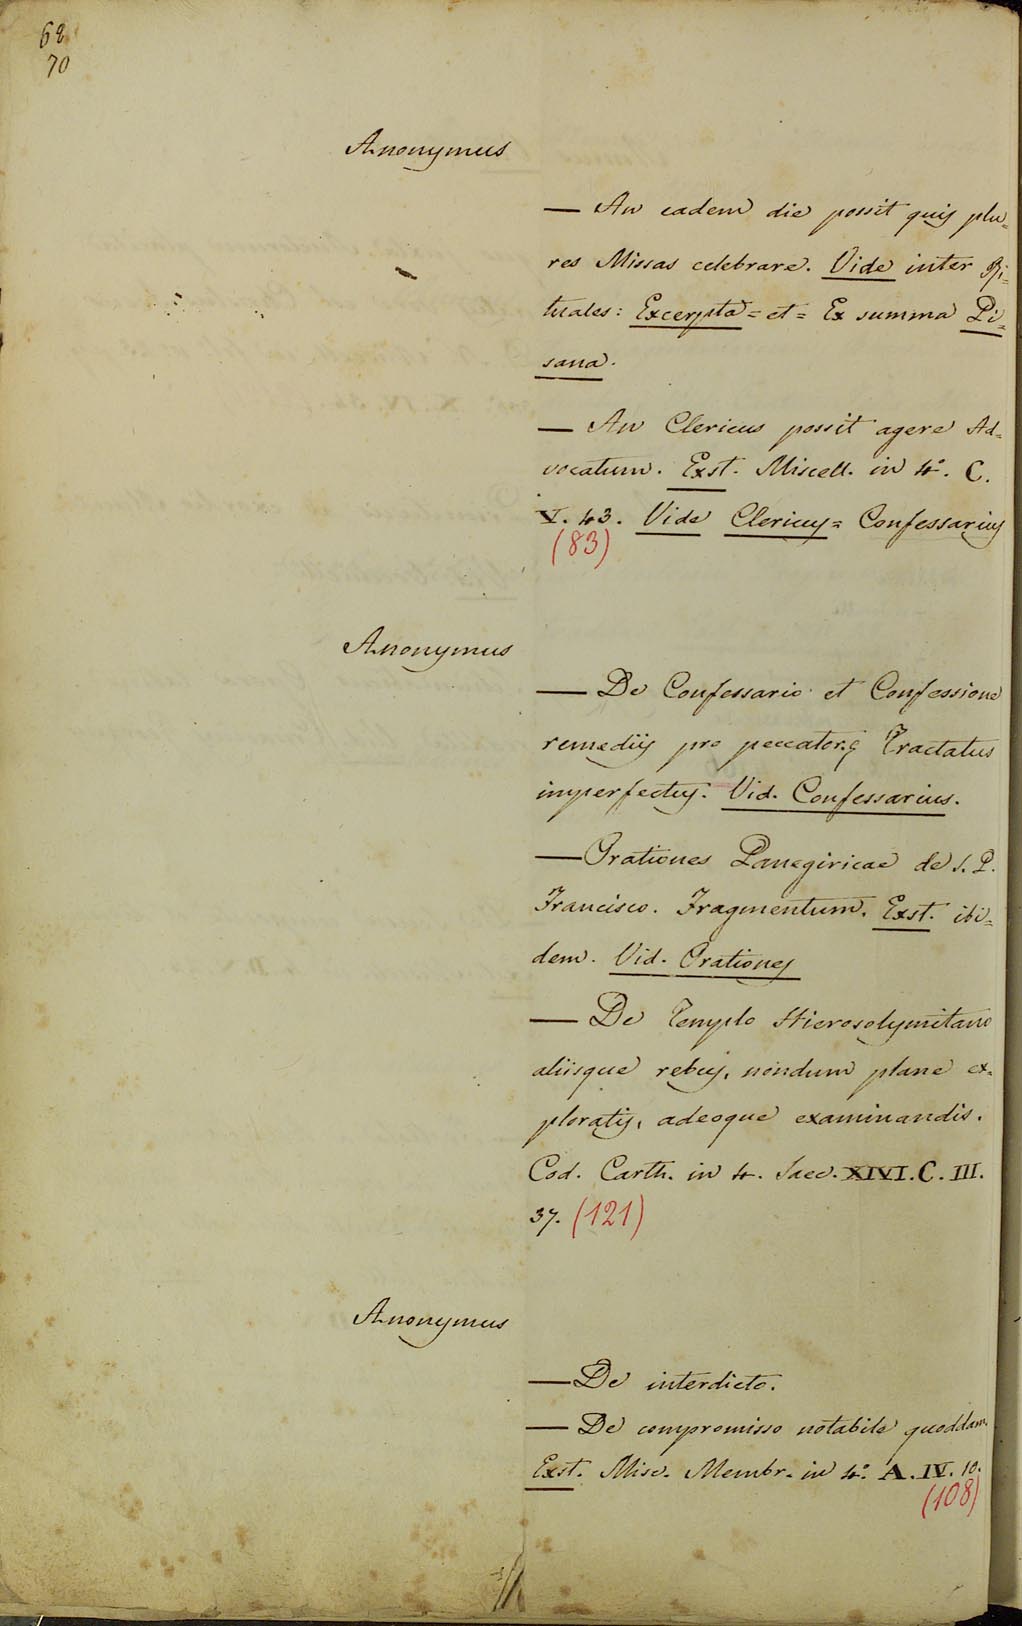 68
70
Anonymus
— An eadem die possit quis plu=
res Missas celebrare. Vide inter Ri=
tuales: Excerpta = et = Ex summa Pi=
sana.
— An Clericus possit agere Ad=
vocatum. Exst. Miscell. in 4º. C.
V. 43. Vide Clericus = Confessarius
(83)
Anonymus
— De Confessario et Confessione
remediis pro peccator.q Tractatus
imperfectus. Vid. Confessarius.
— Orationes Panegiricae de S. P.
Francisco. Fragmentum. Exst. ibi=
dem. Vid. Orationes
— De Templo Hierosolymitano
aliisque rebus, nondum plane ex=
ploratis, adeoque examinandis.
Cod. Carth. in 4. Saec. XIVI. C. III.
37. (121)
Anonymus
— De interdicto.
— De compromisso notabile quoddam.
Exst. Misc. Membr. in 4º. A. IV. 10.
(108)